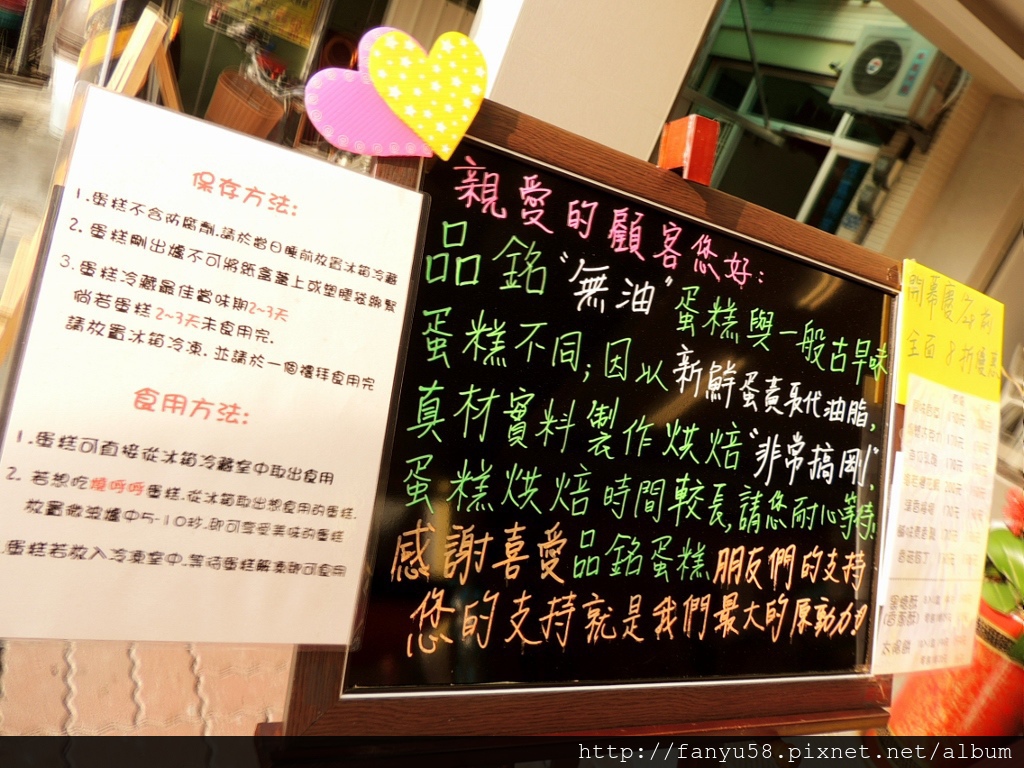 保存方法:
1.蛋糕不含防腐劑.請於當日睡前放置冰箱冷藏
2.蛋糕剛出爐不可將紙盒蓋上或塑膠袋綁緊
3.蛋糕冷藏最佳嘗味期2~3天
倘若蛋糕2~3天未食用完.
請放置冰箱冷凍.並請於一個禮拜食用完
食用方法:
1.蛋糕可直接從冰箱冷藏室中取出食用
2.若想吃燒呼呼蛋糕.從冰箱取出想食用的蛋糕.
放置微波爐中5-10秒.即可享受美味的蛋糕
.蛋糕若放入冷凍室中.等待蛋糕解凍即可食用
親愛的顧客您好:
品銘"無油"蛋糕與一般古早味
蛋糕不同;因以新鮮蛋黃取代油脂,
真材實料製作烘焙"非常搞剛",
蛋糕烘焙時間較長,請您耐心等待!
感謝喜愛品銘蛋糕朋友們的支持
您的支持就是我們最大的原動力!
開幕慶
全面8折優惠
http://fanyu58.pixnet.net/album